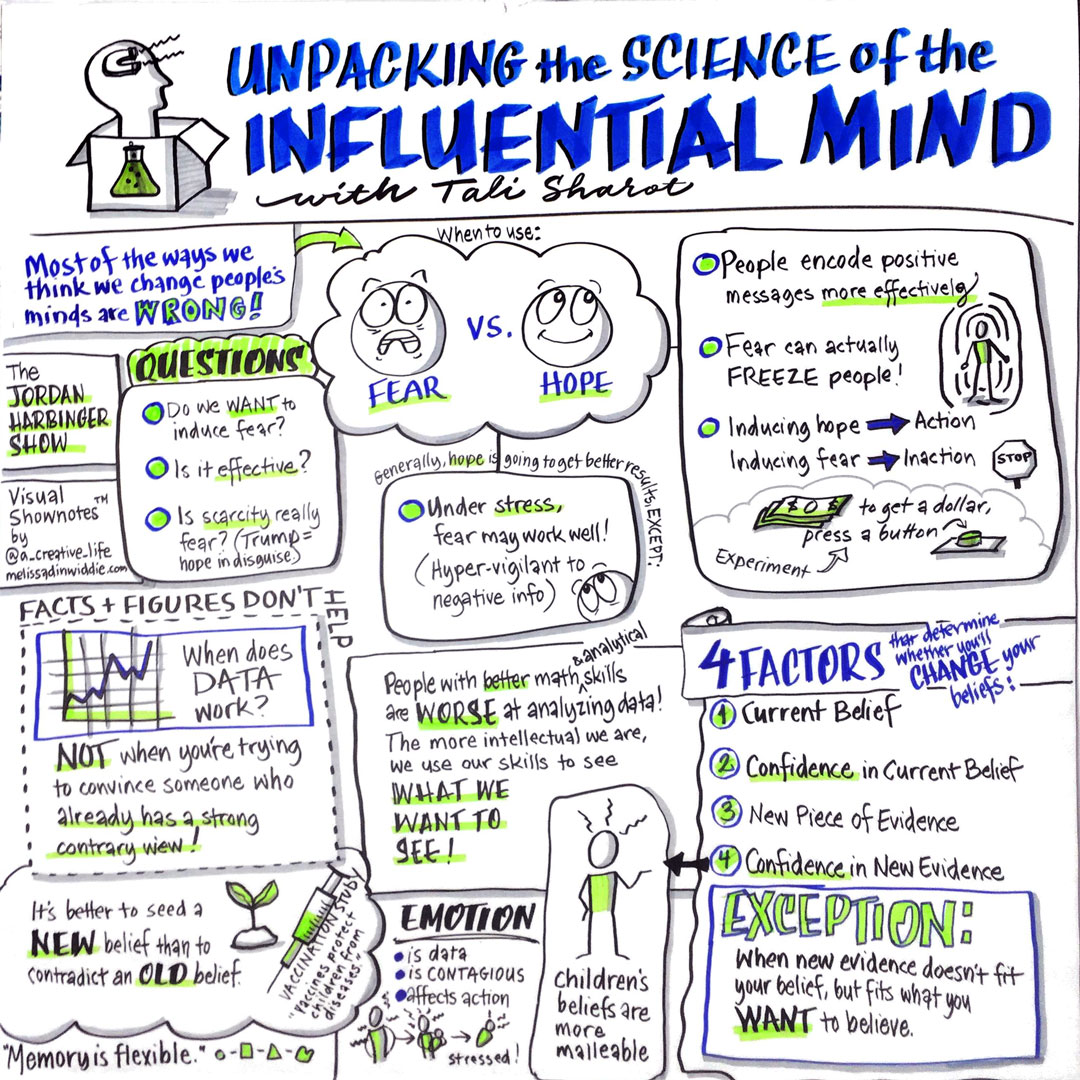 UNPACKING the SCIENCE of the
INFLUENTIAL MIND
with Tali Sharot
Most of the ways we
think we change people's
minds are WRONG!
The
JORDAN
HARBINGER
SHOW
Visual
Shownotes™
by
@a_creative_life
melissadinwiddie.com
QUESTIONS
Do we WANT to
induce fear?
Is it effective?
Is scarcity really
fear? (Trump =
hope in disguise)
When to use:
FEAR
VS.
HOPE
Generally, hope is going to get better results, EXCEPT:
Under stress,
fear may work well!
(Hyper-vigilant to
negative info)
People encode positive
messages more effectively
Fear can actually
FREEZE people!
Inducing hope → Action
Inducing fear → Inaction
STOP
$ 0 $
to get a dollar,
press a button
Experiment
FACTS + FIGURES DON'T HELP
When does
DATA
work?
NOT when you're trying
to convince someone who
already has a strong
contrary view!
People with better math & analytical skills
are WORSE at analyzing data!
The more intellectual we are,
we use our skills to see
WHAT WE
WANT TO
SEE!
4 FACTORS that determine
whether you'll
CHANGE your
beliefs:
1 Current Belief
2 Confidence in Current Belief
3 New Piece of Evidence
4 Confidence in New Evidence
EXCEPTION:
When new evidence doesn't fit
your belief, but fits what you
WANT to believe.
Children's
beliefs are
more
malleable
It's better to seed a
NEW belief than to
contradict an OLD belief.
VACCINATION STUDY
"Vaccines protect
children from
diseases."
EMOTION
is data
is CONTAGIOUS
affects action
stressed!
"Memory is flexible."